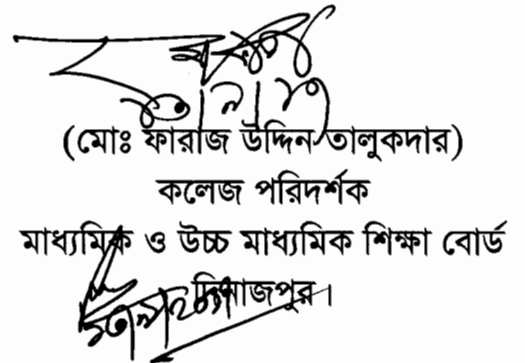 (মোঃ ফারাজ উদ্দিন তালুকদার)
কলেজ পরিদর্শক
মাধ্যমিক ও উচ্চ মাধ্যমিক শিক্ষা বোর্ড
দিনাজপুর।